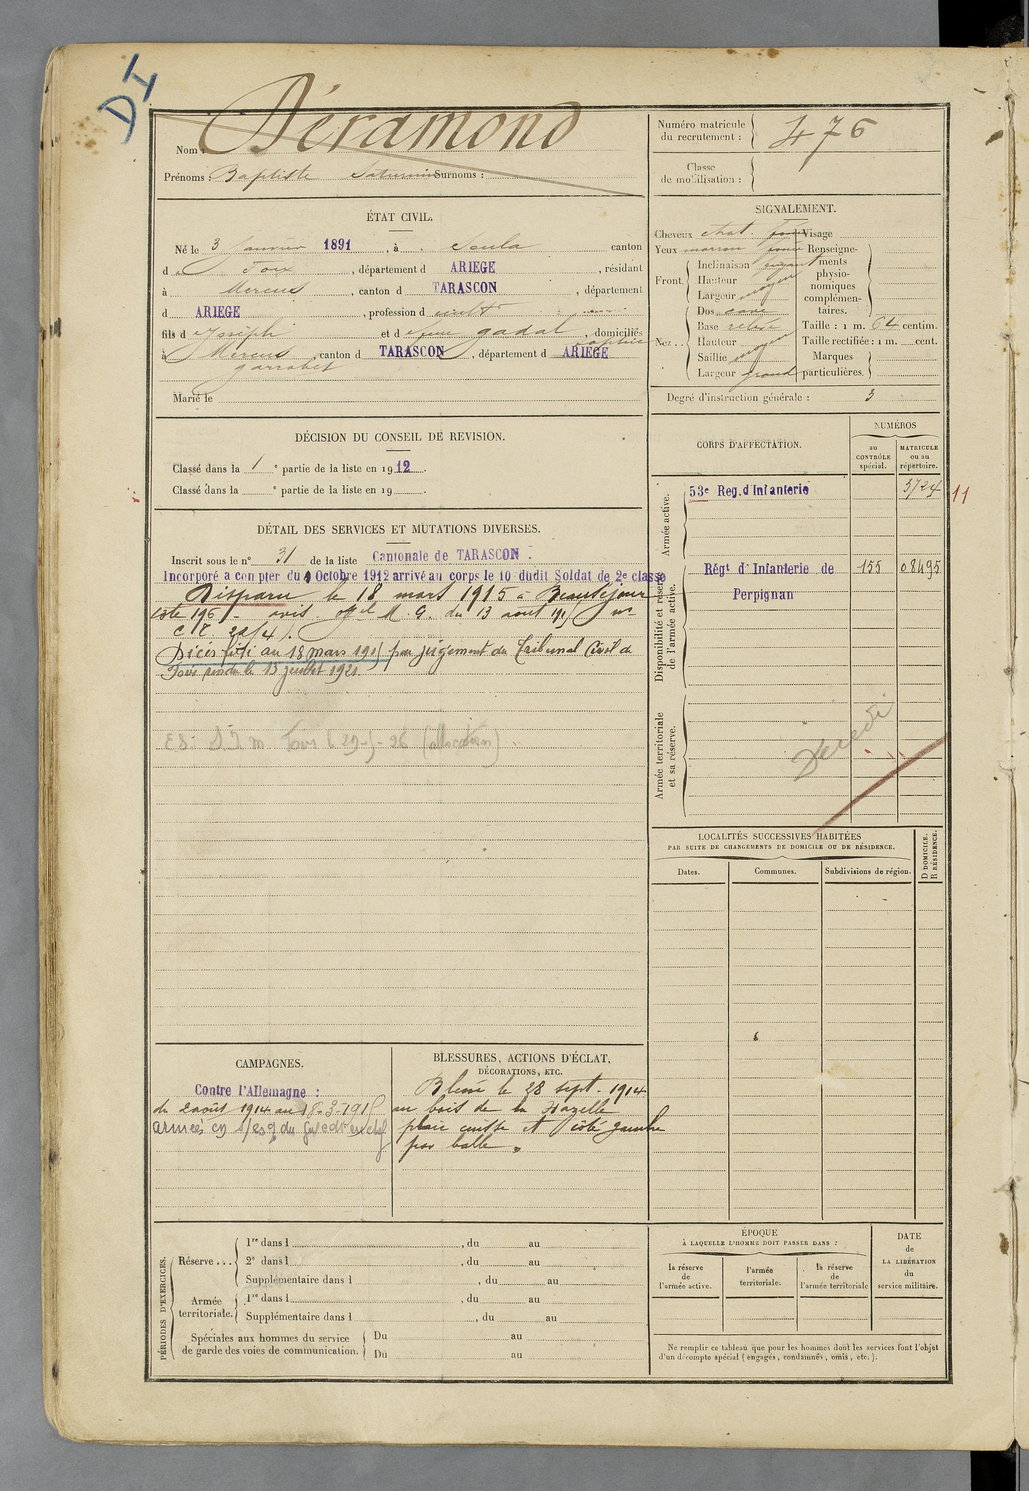 DI
Nom : Déramond
Prénoms : Baptiste Saturnin Surnoms :
Numéro matricule
du recrutement : 476
Classe
de mobilisation :
ÉTAT CIVIL.
Né le 3 Janvier 1891, à Soula canton
d Foix, département d ARIEGE, résidant
à Mercus, canton d TARASCON, département
d ARIEGE, profession d cult
fils d Joseph et d gadal Sophie, domiciliés
à Mercus garrabet, canton d TARASCON, département d ARIEGE
Marié le
SIGNALEMENT.
Cheveux chat. foncé Visage
Yeux marron Renseigne-
ments
physio-
nomiques
complémen-
taires.
Front. Inclinaison
Hauteur moyen
Largeur moyen
Nez. . Dos cave
Base relevée
Hauteur moyen
Saillie moyen
Largeur grand
Taille : 1 m. 64 centim.
Taille rectifiée : 1 m. cent.
Marques
particulières.
Degré d'instruction générale : 3
DÉCISION DU CONSEIL DE REVISION.
Classé dans la 1e partie de la liste en 1912.
Classé dans la e partie de la liste en 19 .
CORPS D'AFFECTATION.
NUMÉROS
au
CONTRÔLE
spécial.
MATRICULE
ou au
répertoire.
Armée active.
53e Reg. d'Infanterie 3724 11
Disponibilité et réserve
de l'armée active.
Régt d'Infanterie de 155 08495
Perpignan
Armée territoriale
et sa réserve.
Décédé
DÉTAIL DES SERVICES ET MUTATIONS DIVERSES.
Inscrit sous le n° 31 de la liste Cantonale de TARASCON.
Incorporé a compter du 1 Octobre 1912 arrivé au corps le 10 dudit Soldat de 2e classe
Disparu le 18 mars 1915 à Beauséjour
cote 196 - avis offel M. G. du 13 aout 1915
Décès fixé au 18 mars 1915 par jugement du Tribunal Civil de
Foix rendu le 13 juillet 1921.
LOCALITÉS SUCCESSIVES HABITÉES
PAR SUITE DE CHANGEMENTS DE DOMICILE OU DE RÉSIDENCE.
Dates.
Communes.
Subdivisions de région.
D DOMICILE.
R RÉSIDENCE.
CAMPAGNES.
Contre l'Allemagne :
du 2 août 1914 au 18-3-1915
BLESSURES, ACTIONS D'ÉCLAT,
DÉCORATIONS, ETC.
Blessé le 28 sept. 1914
au bois de la Hazelle
plaie cuisse et côté gauche
par balle.
PÉRIODES D'EXERCICES.
Réserve . . . 1re dans l , du au
2e dans l , du au
Supplémentaire dans l , du au
Armée
territoriale. 1re dans l , du au
Supplémentaire dans l , du au
Spéciales aux hommes du service
de garde des voies de communication. Du au
Du au
ÉPOQUE
À LAQUELLE L'HOMME DOIT PASSER DANS :
la réserve
de
l'armée active.
l'armée
territoriale.
la réserve
de
l'armée territoriale
DATE
de
LA LIBÉRATION
du
service militaire.
Ne remplir ce tableau que pour les hommes dont les services font l'objet
d'un décompte spécial (engagés, condamnés, omis, etc.).